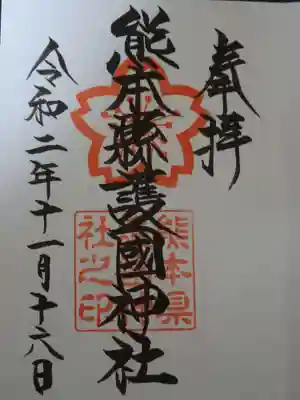 奉拝
熊本縣護國神社
令和二年十一月十六日
熊本県
社之印